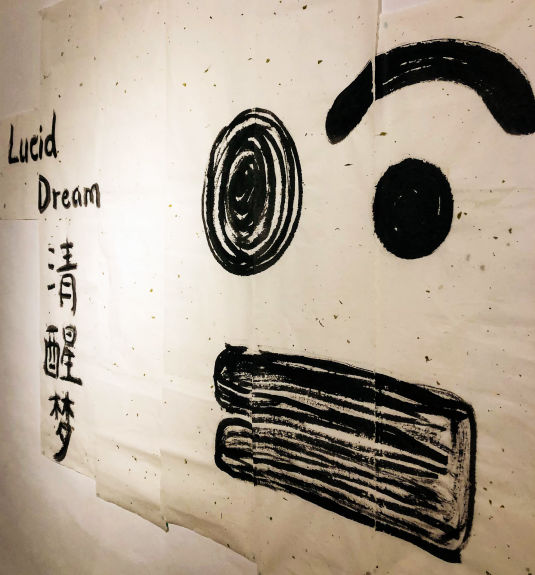 Lucid
Dream
清醒梦